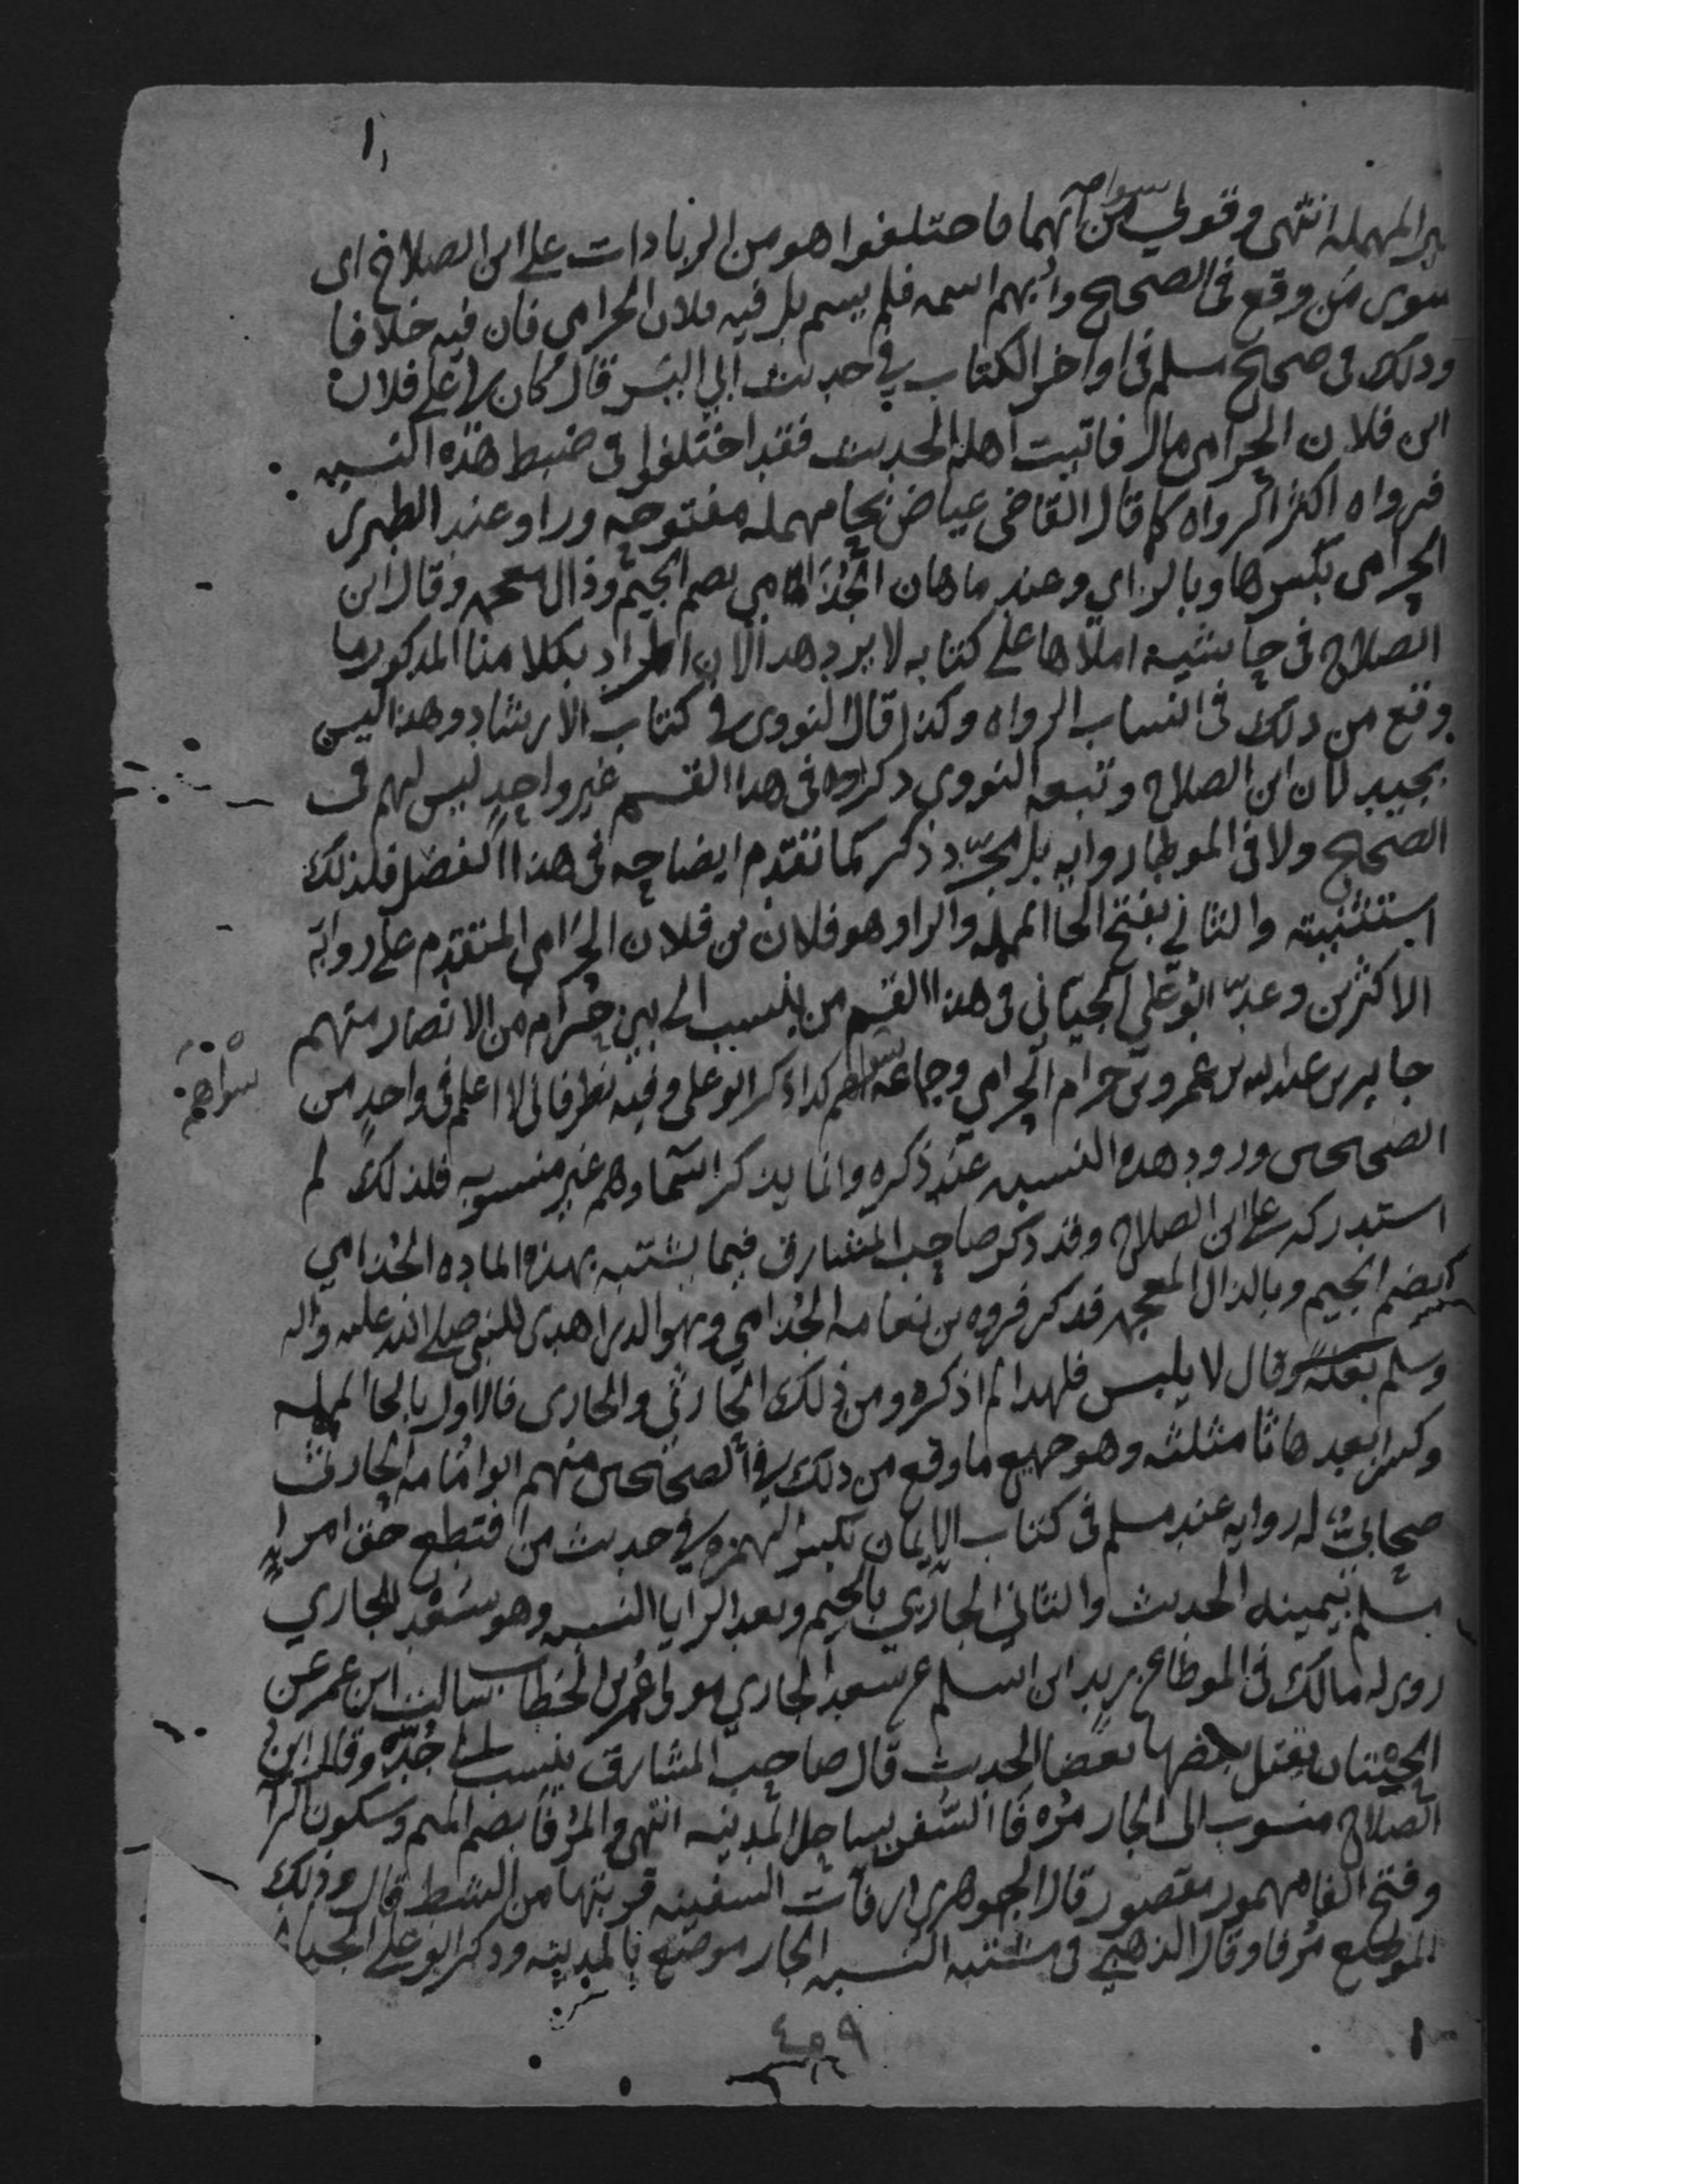 المهمله انتهى وقولي سوى من ابهما فاختلفوا هو من الزيادات على ابن الصلاح اى
سوى من وقع فى الصحيح وابهم اسمه فلم يسم بل فيه فلان الحزامى فان فيه خلافا
وذلك فى صحيح مسلم فى اواخر الكتاب في حديث ابي اليسر قال كان لي على فلان
ابن فلان الحرامى مال فاتيت اهله الحديث فقد اختلفوا فى ضبط هذه النسبه
فرواه اكثر الرواه كما قال القاضى عياض بحا مهمله مفتوحه ورا وعند الطبري
الحزامى بكسرها وبالزاي وعند ماهان الجُذَامي بضم الجيم وذال معجمه وقال ابن
الصلاح فى حاشية املاها على كتابه لا يرد هذا لان المراد بكلامنا المذكور ما
وقع من ذلك فى انساب الرواه وكذا قال النووى في كتاب الارشاد وهذا ليس
بجيد لان ابن الصلاح وتبعه النووي ذكروا فى هذا القسم غير واحدٍ ليس لهم فى
الصحيح ولا فى الموطا روايه بل مجرّد ذكر كما تقدم ايضاحه فى هذا الفصل فلذلك
استثنيته والثاني بفتح الحا المهمله والرا وهو فلان بن فلان الحَرَامى المتقدم على روايه
الاكثرين وعدّ ابو علي الجيّاني فى هذا القسم من ينسب الى بني حرام من الانصار منهم
جابر بن عبد الله بن عمرو بن حرام الحرامي وجماعه سواهم كذا ذكر ابو على وفيه نظر فانى لا اعلم فى واحدٍ من
سواهم
الصحيحين ورود هذه النسبه عند ذكره وانما يذكر اسماوهم غير منسوبه فلذلك لم
استدركه على ابن الصلاح وقد ذكر صاحب المشارق فيما يشتبه بهذه الماده الجذامي
بضم الجيم وبالذال المعجمه فذكر فروه بن نعامه الجُذامي وهو الذى اهدى للنبى صلى الله عليه واله
وسلم بغلة وقال لا يلبس فلهذا لم اذكره ومن ذلك الحارثي والجارى فالاول بالحا المهمله
وكسر الرا بعدها ثا مثلثه وهو جميع ما وقع من ذلك في الصحيحين منهم ابو امامه الحارثى
صحابيٌّ له روايه عند مسلم فى كتاب الايمان بكسر الهمزه في حديث من اقتطع حق امرئٍ
مسلم بيمينه الحديث والثاني الجاري بالجيم وبعد الرا يا النسبه وهو سَعْد الجاري
روى له مالك فى الموطا عن زيد ابن اسلم عن سعد الجاري مولى عمر بن الخطاب سالت ابن عمر عن
الحيتان يقتل بعضها بعضا الحديث قال صاحب المشارق ينسب الى جدّه وقال ابن
الصلاح منسوب الى الجار مُرفا السُفن بساحل المدينه انتهى والمُرْفا بضم الميم وسكون الرا
وفتح الفا مهموز مقصور قال الجوهري ارفات السفينه قربتها من الشط قال وذلك
الموضع مُرفا وقال الذهبي فى مشتبه النسبه الجار موضع بالمدينه وذكر ابو على الجيا
٤٥٩